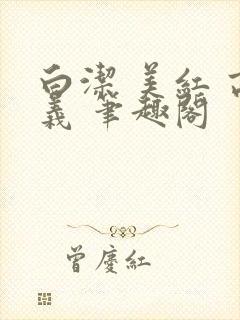 白潔 美紅 高
義 筆趣閣
曾慶紅